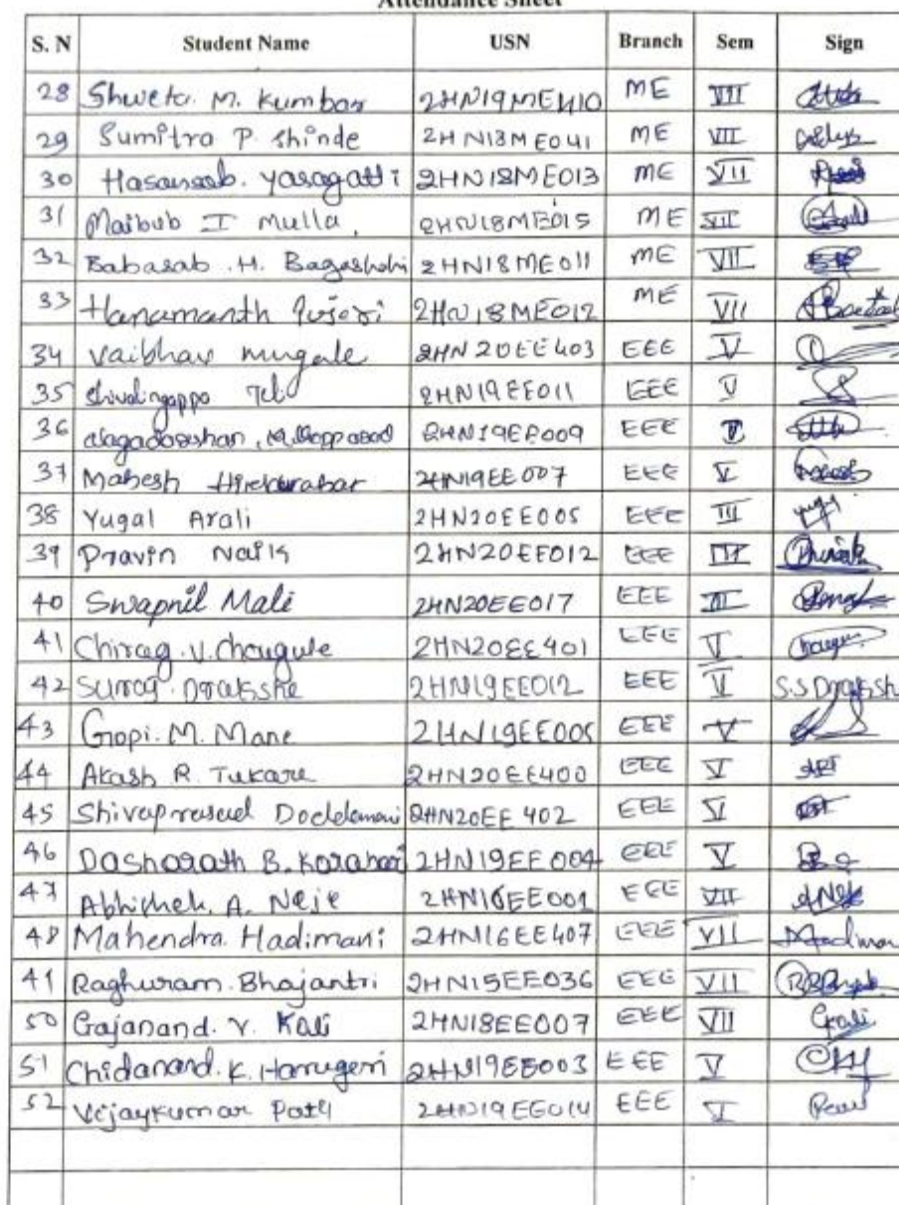 Attendance Sheet
S. N Student Name USN Branch Sem Sign
28 Shweta. M. Kumbar 2HN19ME410 ME VII
29 Sumitra P. Shinde 2HN18ME041 ME VII
30 Hasansab. Yaragatti 2HN18ME013 ME VII
31 Maibub I Mulla, 2HN18ME015 ME VII
32 Babasab .H. Bagashahi 2HN18ME011 ME VII
33 Hanamanth Pujeri 2HN18ME012 ME VII
34 Vaibhav mugale 2HN20EE403 EEE V
35 Shivalingappa Teli 2HN19EE011 EEE V
36 2HN19EE009 EEE V
37 Mahesh 2HN19EE007 EEE V
38 Yugal Arali 2HN20EE005 EEE III
39 Pravin Naik 2HN20EE012 EEE III
40 Swapnil Mali 2HN20EE017 EEE III
41 Chirag .V. Chougule 2HN20EE401 EEE V
42 Surag. Drakshe 2HN19EE012 EEE V S.S Drakshe
43 Gopi. M. Mane 2HN19EE005 EEE V
44 Akash R. Tukare 2HN20EE400 EEE V
45 Shivaprasad Doddamani 2HN20EE402 EEE V
46 Dasharath B. Korabari 2HN19EE004 EEE V
47 Abhishek. A. Neje 2HN16EE001 EEE VII
48 Mahendra. Hadimani 2HN16EE407 EEE VII
41 Raghuram. Bhajantri 2HN15EE036 EEE VII
50 Gajanand. Y. Kali 2HN18EE007 EEE VII Gkali
51 Chidanand. K. Harugeri 2HN19EE003 EEE V
52 Vijaykumar Patil 2HN19EE014 EEE V